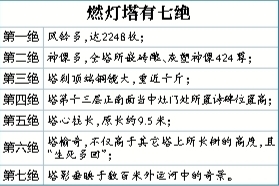 燃灯塔有七绝
第一绝 风铃多,达2248枚;
第二绝 神像多,全塔所嵌砖雕、灰塑神像424尊;
第三绝 塔刹顶端铜镜大,重近十斤;
第四绝 塔第十三层正南面当中灶门处所置诗碑位置高;
第五绝 塔心柱长,原长约9.5米;
第六绝 塔榆奇,不仅高于其它塔上所长树的高度,且
“生死多回”;
第七绝 塔影垂映于数百米外运河中的奇景。